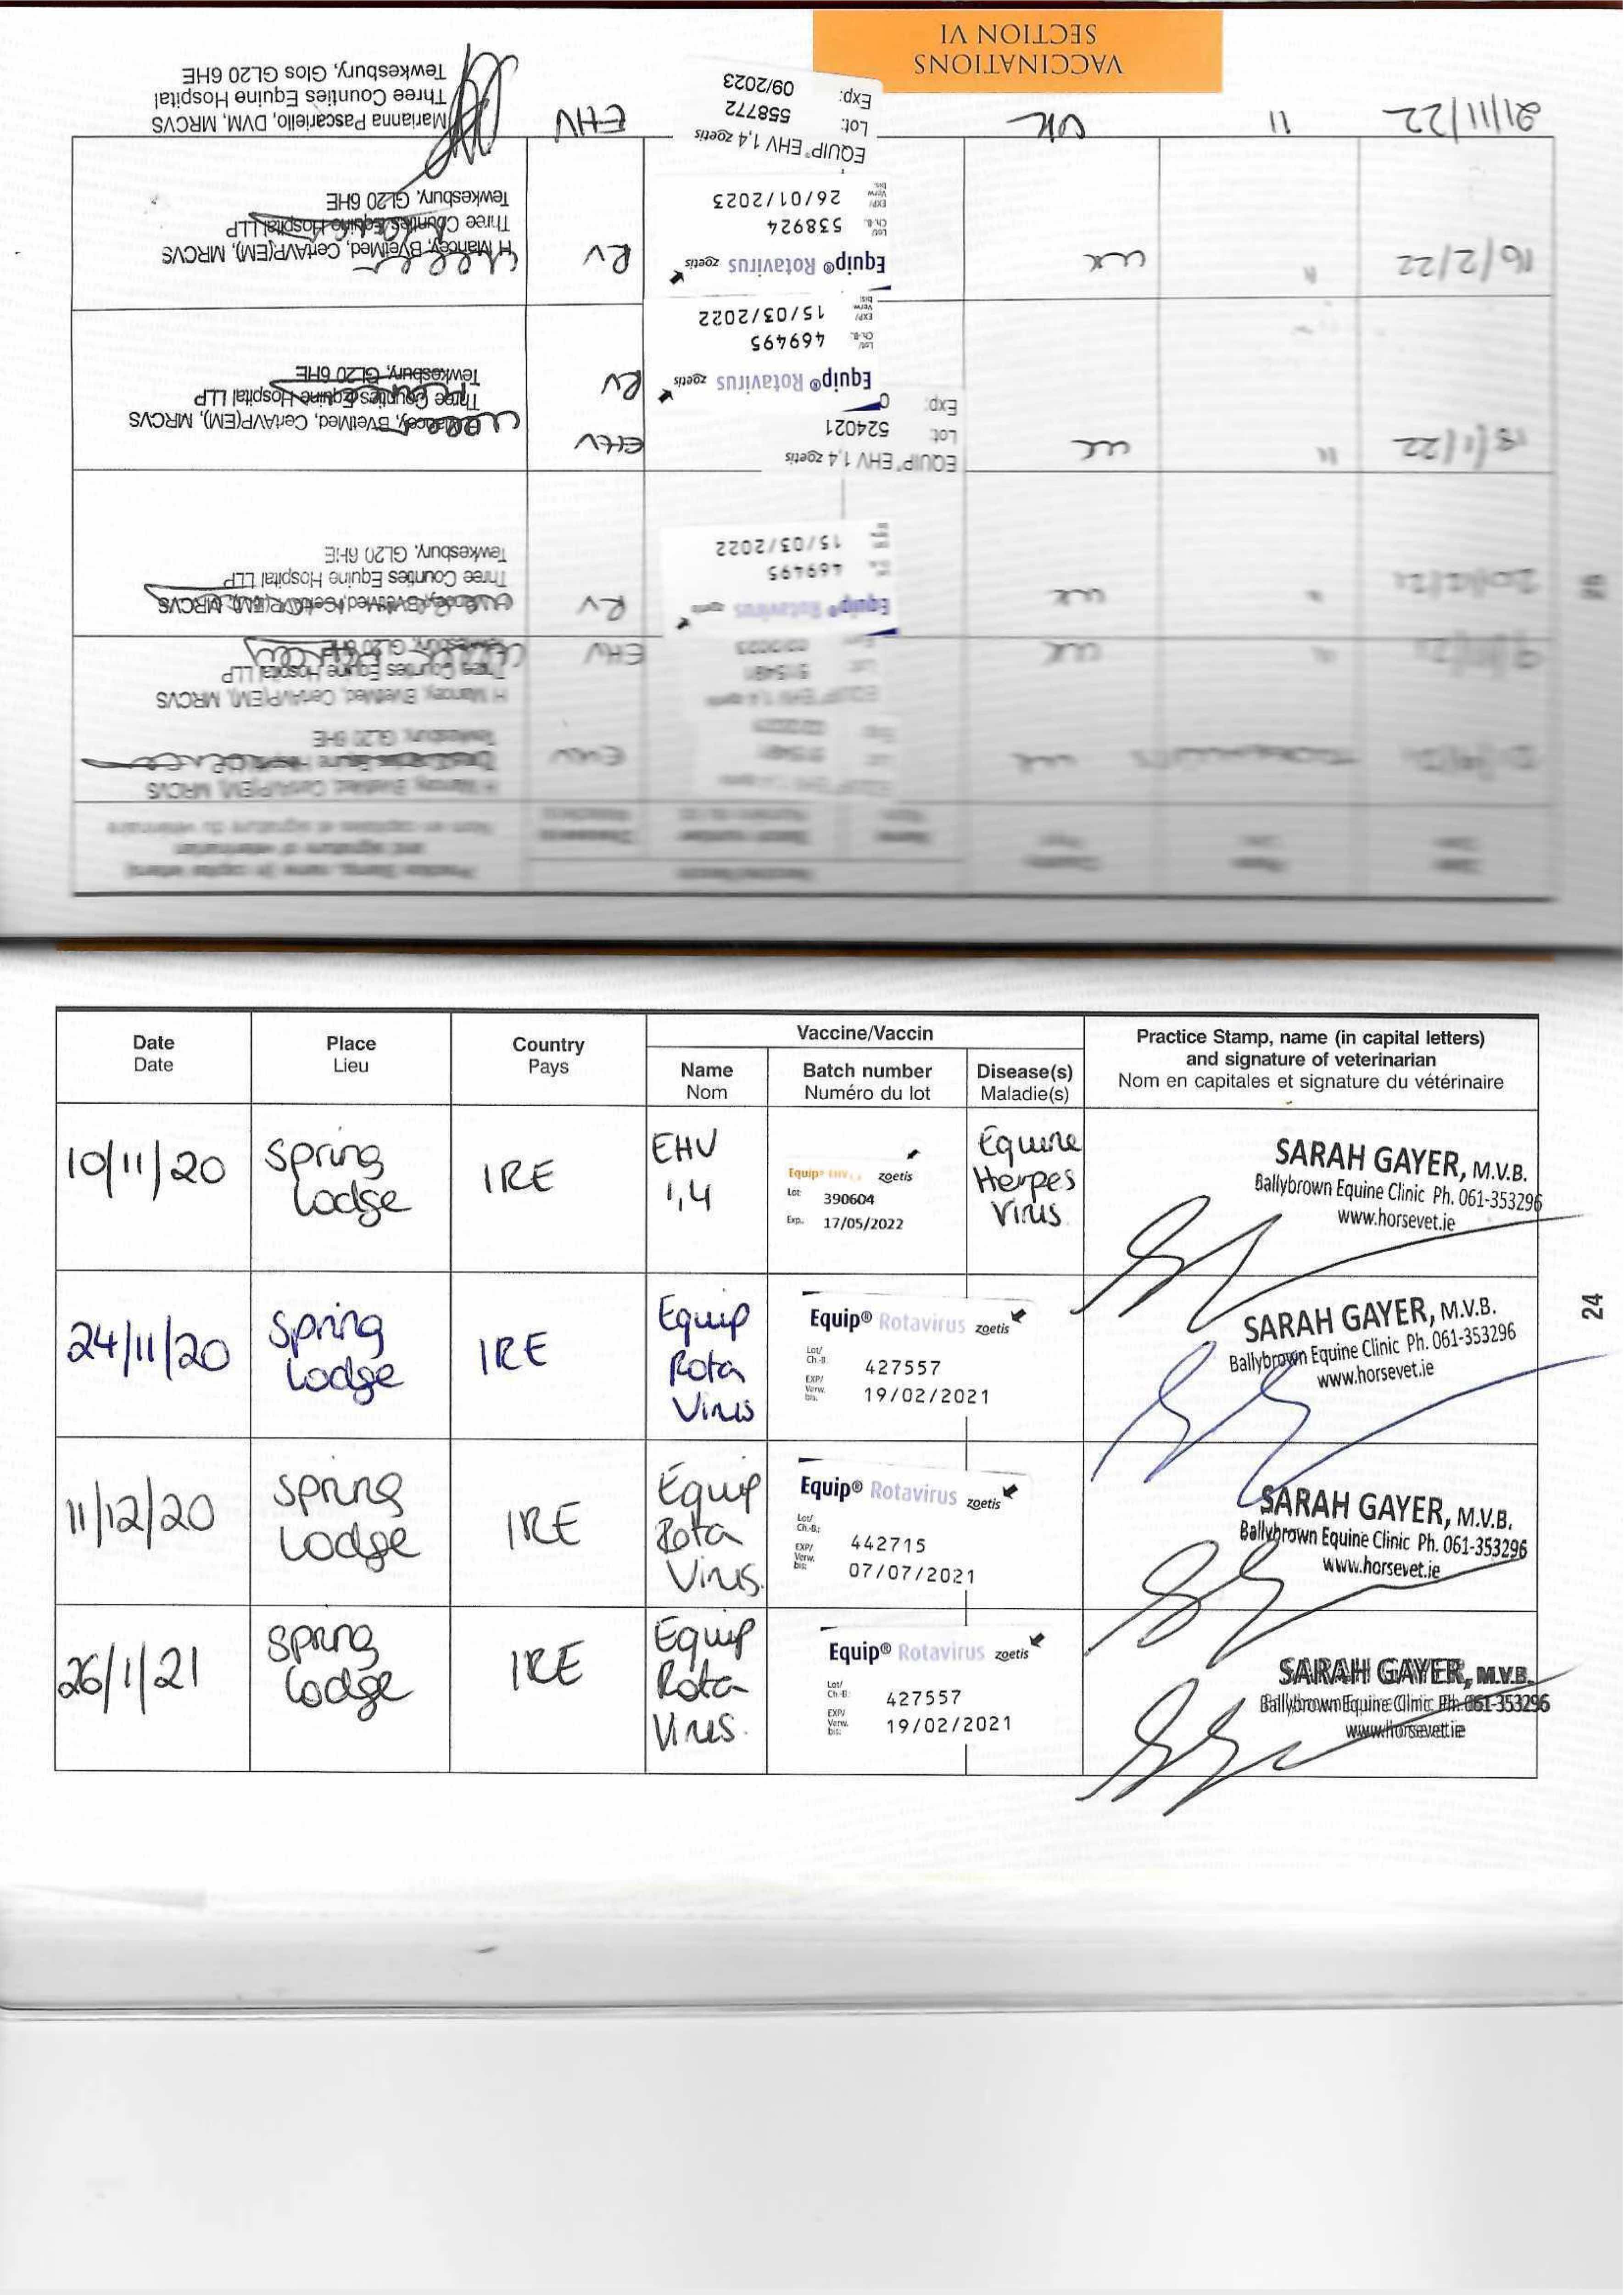 VACCINATIONS
SECTION VI
21/11/22
11
UK
EQUIP® EHV 1,4 zoetis
Lot: 558772
Exp: 09/2023
EHV
Marianna Pascariello, DVM, MRCVS
Three Counties Equine Hospital
Tewkesbury, Glos GL20 6HE
16/2/22
"
UK
Equip® Rotavirus zoetis
Lot/ Ch.-B. 538924
EXP/ Verw. bis: 26/01/2023
RV
H Mancey, BVetMed, CertAVP(EM), MRCVS
Three Counties Equine Hospital LLP
Tewkesbury, GL20 6HE
Equip® Rotavirus zoetis
Lot/ Ch.-B. 469495
EXP/ Verw. bis: 15/03/2022
RV
18/1/22
"
UK
EQUIP® EHV 1,4 zoetis
Lot: 524021
Exp: 0
EHV
H Mancey, BVetMed, CertAVP(EM), MRCVS
Three Counties Equine Hospital LLP
Tewkesbury, GL20 6HE
20/12/21
"
UK
Equip® Rotavirus zoetis
469495
15/03/2022
RV
H Mancey, BVetMed, CertAVP(EM), MRCVS
Three Counties Equine Hospital LLP
Tewkesbury, GL20 6HE
UK
EQUIP® EHV 1,4 zoetis
EHV
H Mancey, BVetMed, CertAVP(EM), MRCVS
Three Counties Equine Hospital LLP
Tewkesbury, GL20 6HE
UK
EQUIP® EHV 1,4 zoetis
EHV
H Mancey, BVetMed, CertAVP(EM), MRCVS
Tewkesbury, GL20 6HE
Date
Date
Place
Lieu
Country
Pays
Vaccine/Vaccin
Name
Nom
Batch number
Numéro du lot
Disease(s)
Maladie(s)
Practice Stamp, name (in capital letters)
and signature of veterinarian
Nom en capitales et signature du vétérinaire
10/11/20
Spring
Lodge
IRE
EHV
1,4
Equip® EHV 1,4 zoetis
Lot: 390604
Exp. 17/05/2022
Equine
Herpes
Virus
SARAH GAYER, M.V.B.
Ballybrown Equine Clinic Ph. 061-353296
www.horsevet.ie
24/11/20
Spring
Lodge
IRE
Equip
Rota
Virus
Equip® Rotavirus zoetis
Lot/ Ch.-B. 427557
EXP/ Verw. bis. 19/02/2021
SARAH GAYER, M.V.B.
Ballybrown Equine Clinic Ph. 061-353296
www.horsevet.ie
24
11/12/20
Spring
Lodge
IRE
Equip
Rota
Virus.
Equip® Rotavirus zoetis
Lot/ Ch.-B.: 442715
EXP/ Verw. bis: 07/07/2021
SARAH GAYER, M.V.B.
Ballybrown Equine Clinic Ph. 061-353296
www.horsevet.ie
26/1/21
Spring
Lodge
IRE
Equip
Rota
Virus.
Equip® Rotavirus zoetis
Lot/ Ch.-B: 427557
EXP/ Verw. bis: 19/02/2021
SARAH GAYER, M.V.B.
Ballybrown Equine Clinic Ph. 061-353296
www.horsevet.ie